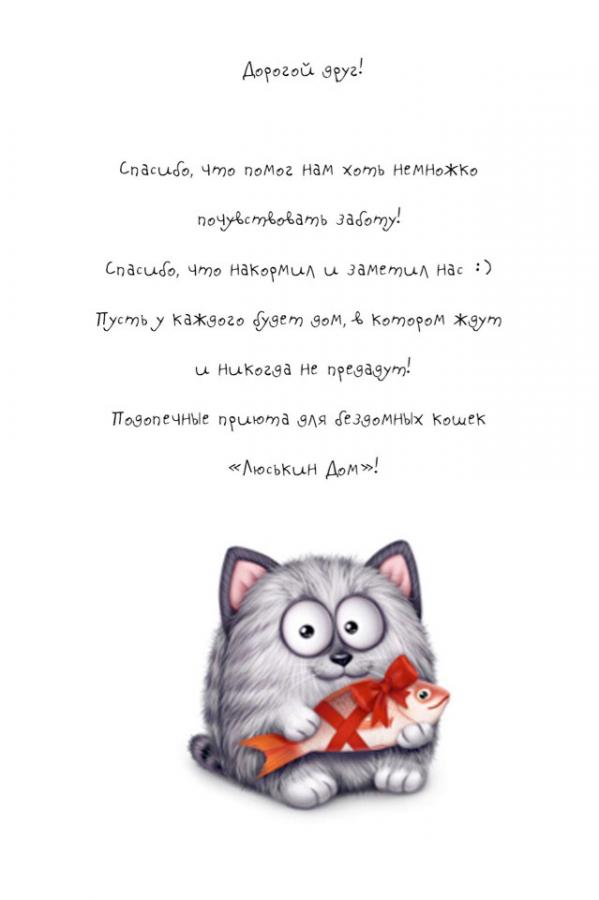 Дорогой друг!
Спасибо, что помог нам хоть немножко
почувствовать заботу!
Спасибо, что накормил и заметил нас :)
Пусть у каждого будет дом, в котором ждут
и никогда не предадут!
Подопечные приюта для бездомных кошек
«Люськин Дом»!